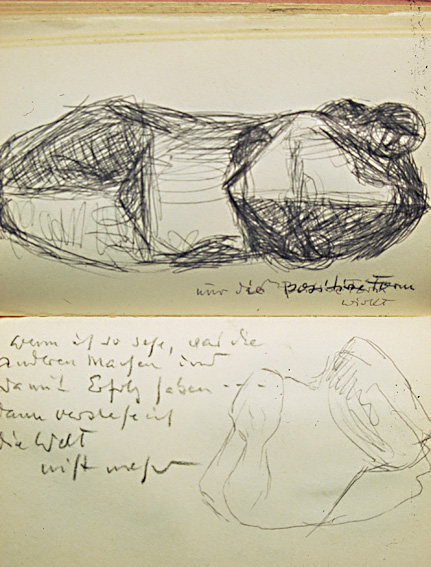 nur die positive Form
wirkt
wenn ich so sehe, was die
anderen machen und
damit Erfolg haben - - - -
dann verstehe ich
die Welt
nicht mehr